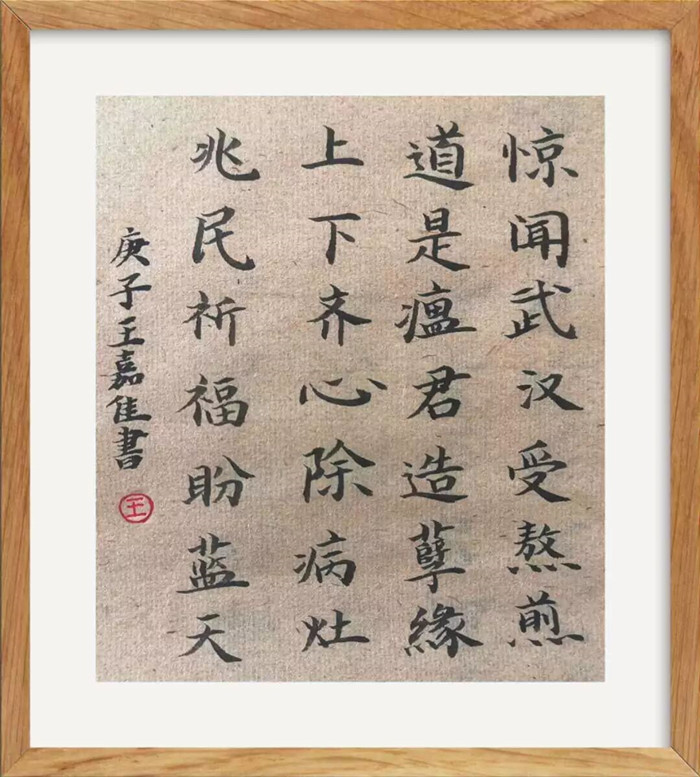 惊闻武汉受熬煎
道是瘟君造孽緣
上下齐心除病灶
兆民祈福盼蓝天
庚子王嘉佳書
王